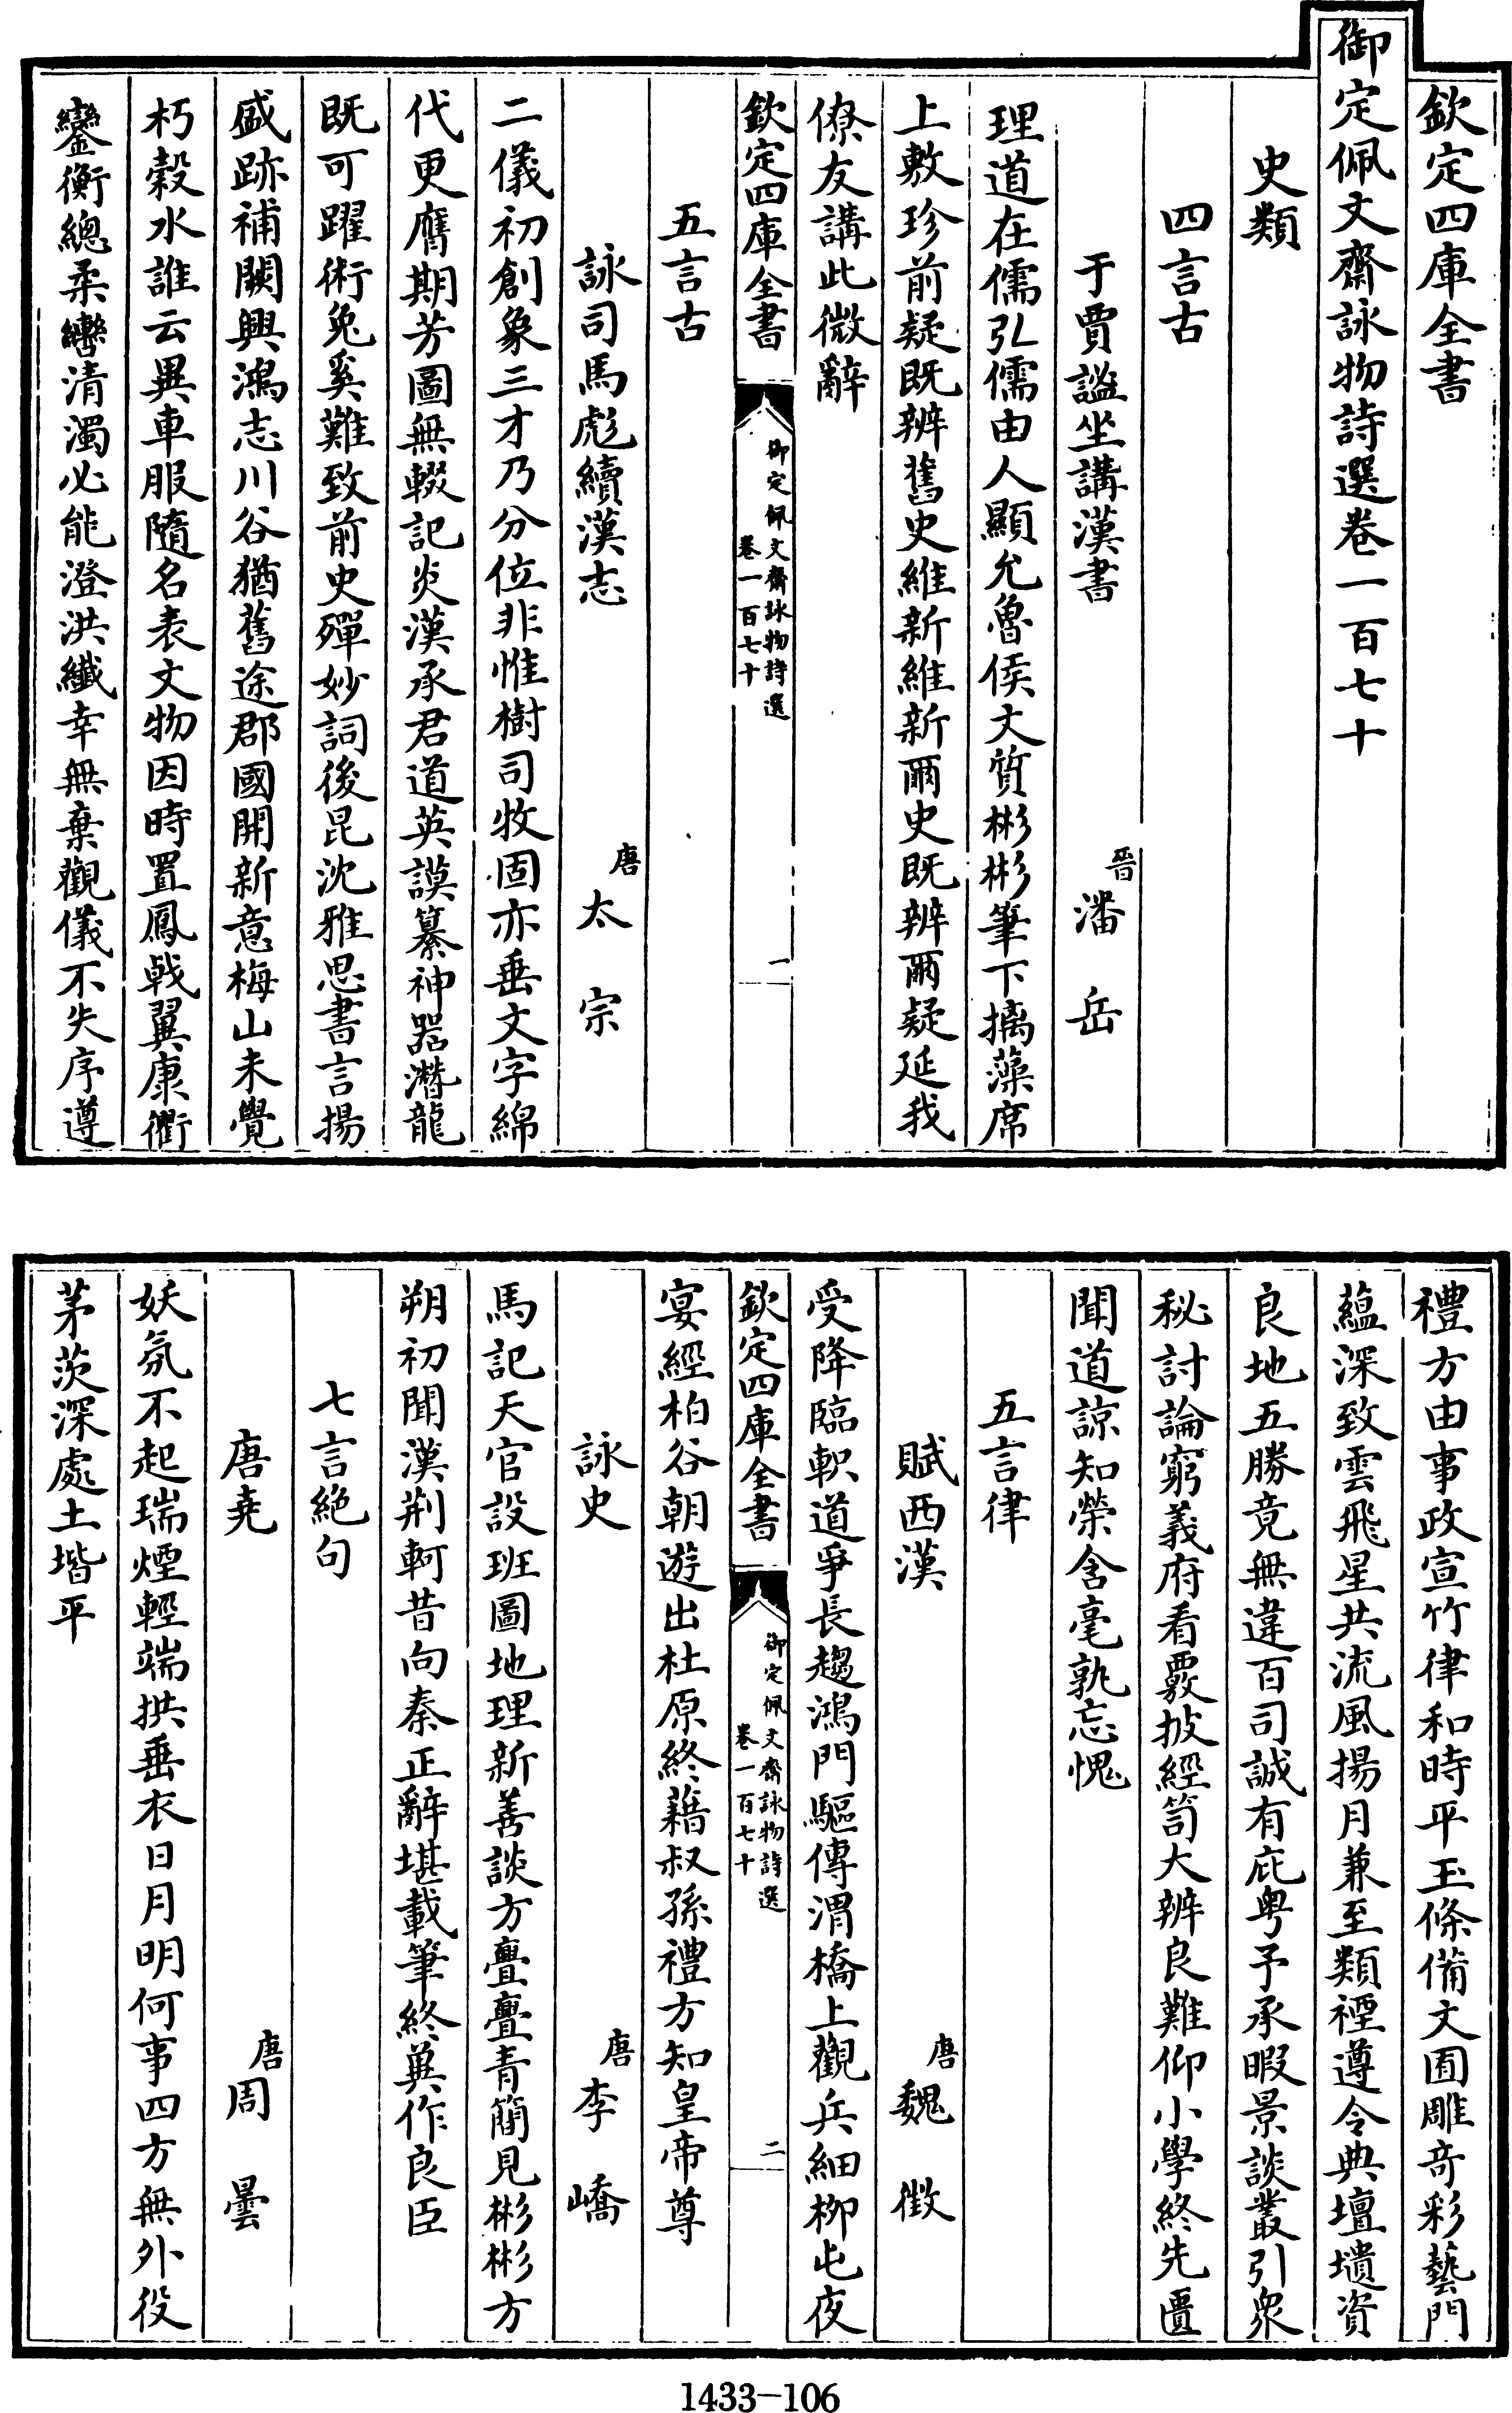 欽定四庫全書
御定佩文齋詠物詩選卷一百七十
史類
四言古
于賈謐坐講漢書 晉 潘岳
理道在儒弘儒由人顯允魯侯文質彬彬筆下摛藻席
上敷珍前疑既辨舊史維新維新爾史既辨爾疑延我
僚友講此微辭
欽定四庫全書 御定佩文齋詠物詩選 卷一百七十 一
五言古
詠司馬彪續漢志 唐 太宗
二儀初創象三才乃分位非惟樹司牧固亦垂文字綿
代更膺期芳圖無輟記炎漢承君道英謨纂神器潛龍
既可躍術兔奚難致前史殫妙詞後昆沈雅思書言揚
盛跡補闕興鴻志川谷猶舊途郡國開新意梅山未覺
朽穀水誰云異車服隨名表文物因時置鳳戟翼康衢
鑾衡總柔轡清濁必能澄洪纖幸無棄觀儀不失序遵
禮方由事政宣竹律和時平玉條備文囿雕奇彩藝門
蘊深致雲飛星共流風揚月兼至類禋遵令典壇壝資
良地五勝竟無違百司誠有庇粤予承暇景談叢引衆
秘討論窮義府看覈披經笥大辨良難仰小學終先匱
聞道諒知榮含毫孰忘愧
五言律
賦西漢 唐 魏徵
受降臨軹道爭長趨鴻門驅傳渭橋上觀兵細柳屯夜
欽定四庫全書 御定佩文齋詠物詩選 卷一百七十 二
宴經柏谷朝遊出杜原終藉叔孫禮方知皇帝尊
詠史 唐 李嶠
馬記天官設班圖地理新善談方亹亹青簡見彬彬方
朔初聞漢荆軻昔向秦正辭堪載筆終冀作良臣
七言絕句
唐堯 唐 周曇
妖氛不起瑞煙輕端拱垂衣日月明何事四方無外役
茅茨深處土堦平
1433-106